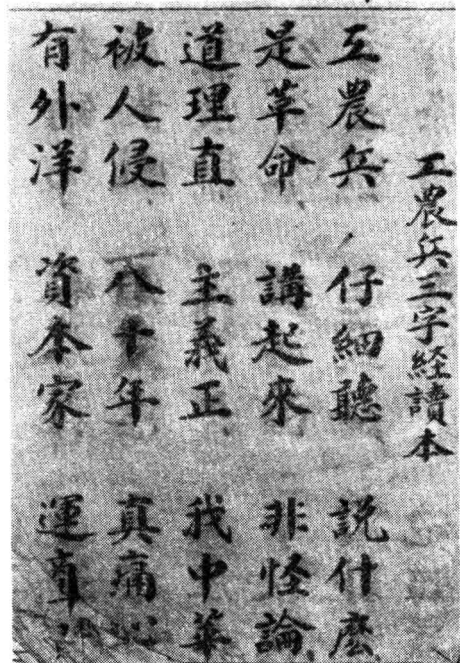 工農兵三字経讀本
工農兵 仔細聽 説什麽
是革命 講起來 非怪論
道理直 主義正 我中華
被人侵 八十年 真痛心
有外洋 資本家 運